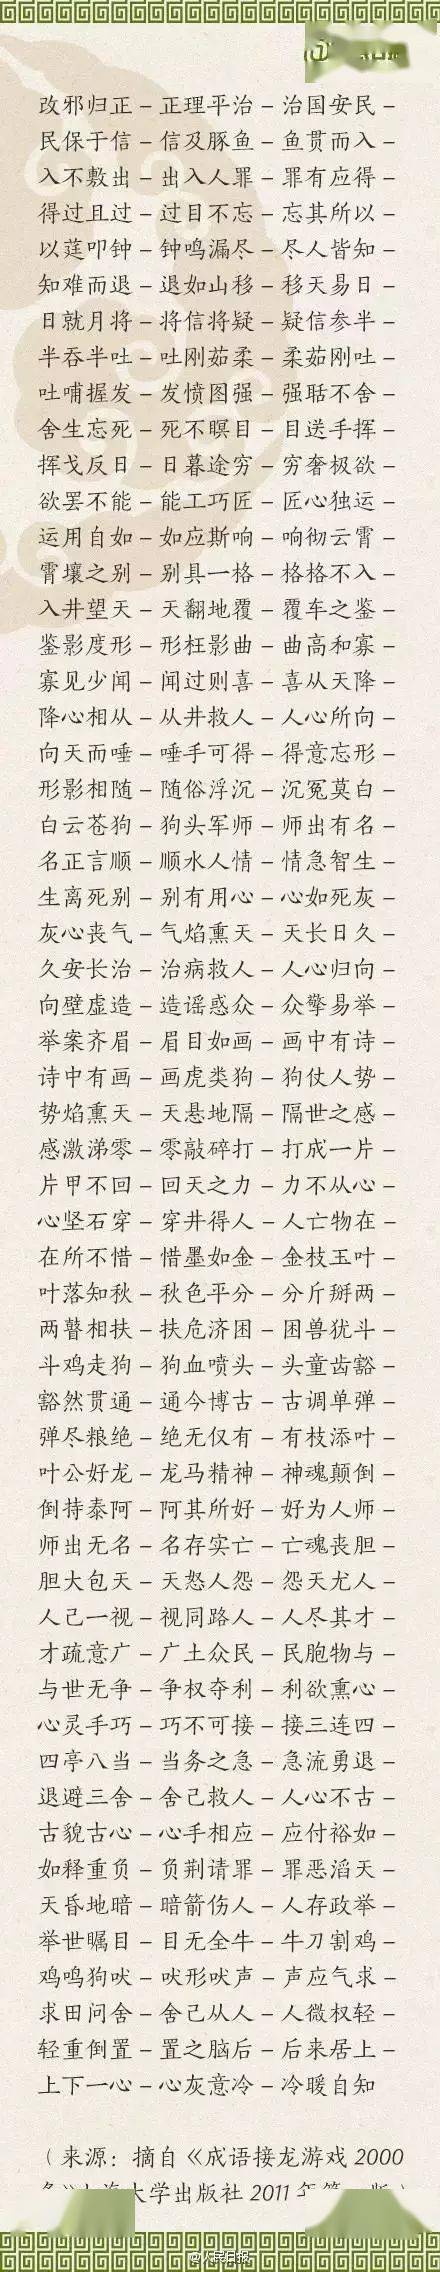 改邪归正 – 正理平治 – 治国安民 –
民保于信 – 信及豚鱼 – 鱼贯而入 –
入不敷出 – 出入人罪 – 罪有应得 –
得过且过 – 过目不忘 – 忘其所以 –
以莛叩钟 – 钟鸣漏尽 – 尽人皆知 –
知难而退 – 退如山移 – 移天易日 –
日就月将 – 将信将疑 – 疑信参半 –
半吞半吐 – 吐刚茹柔 – 柔茹刚吐 –
吐哺握发 – 发愤图强 – 强聒不舍 –
舍生忘死 – 死不暝目 – 目送手挥 –
挥戈反日 – 日暮途穷 – 穷奢极欲 –
欲罢不能 – 能工巧匠 – 匠心独运 –
运用自如 – 如应斯响 – 响彻云霄 –
霄壤之别 – 别具一格 – 格格不入 –
入井望天 – 天翻地覆 – 覆车之鉴 –
鉴影度形 – 形枉影曲 – 曲高和寡 –
寡见少闻 – 闻过则喜 – 喜从天降 –
降心相从 – 从井救人 – 人心所向 –
向天而唾 – 唾手可得 – 得意忘形 –
形影相随 – 随俗浮沉 – 沉冤莫白 –
白云苍狗 – 狗头军师 – 师出有名 –
名正言顺 – 顺水人情 – 情急智生 –
生离死别 – 别有用心 – 心如死灰 –
灰心丧气 – 气焰熏天 – 天长日久 –
久安长治 – 治病救人 – 人心归向 –
向壁虚造 – 造谣惑众 – 众擎易举 –
举案齐眉 – 眉目如画 – 画中有诗 –
诗中有画 – 画虎类狗 – 狗仗人势 –
势焰熏天 – 天悬地隔 – 隔世之感 –
感激涕零 – 零敲碎打 – 打成一片 –
片甲不回 – 回天之力 – 力不从心 –
心坚石穿 – 穿井得人 – 人亡物在 –
在所不惜 – 惜墨如金 – 金枝玉叶 –
叶落知秋 – 秋色平分 – 分斤掰两 –
两瞽相扶 – 扶危济困 – 困兽犹斗 –
斗鸡走狗 – 狗血喷头 – 头童齿豁 –
豁然贯通 – 通今博古 – 古调单弹 –
弹尽粮绝 – 绝无仅有 – 有枝添叶 –
叶公好龙 – 龙马精神 – 神魂颠倒 –
倒持泰阿 – 阿其所好 – 好为人师 –
师出无名 – 名存实亡 – 亡魂丧胆 –
胆大包天 – 天怒人怨 – 怨天尤人 –
人己一视 – 视同路人 – 人尽其才 –
才疏意广 – 广土众民 – 民胞物与 –
与世无争 – 争权夺利 – 利欲熏心 –
心灵手巧 – 巧不可接 – 接三连四 –
四亭八当 – 当务之急 – 急流勇退 –
退避三舍 – 舍己救人 – 人心不古 –
古貌古心 – 心手相应 – 应付裕如 –
如释重负 – 负荆请罪 – 罪恶滔天 –
天昏地暗 – 暗箭伤人 – 人存政举 –
举世瞩目 – 目无全牛 – 牛刀割鸡 –
鸡鸣狗吠 – 吠形吠声 – 声应气求 –
求田问舍 – 舍己从人 – 人微权轻 –
轻重倒置 – 置之脑后 – 后来居上 –
上下一心 – 心灰意冷 – 冷暖自知
（来源：摘自《成语接龙游戏 2000
大学出版社 2011 年第
@人民日报